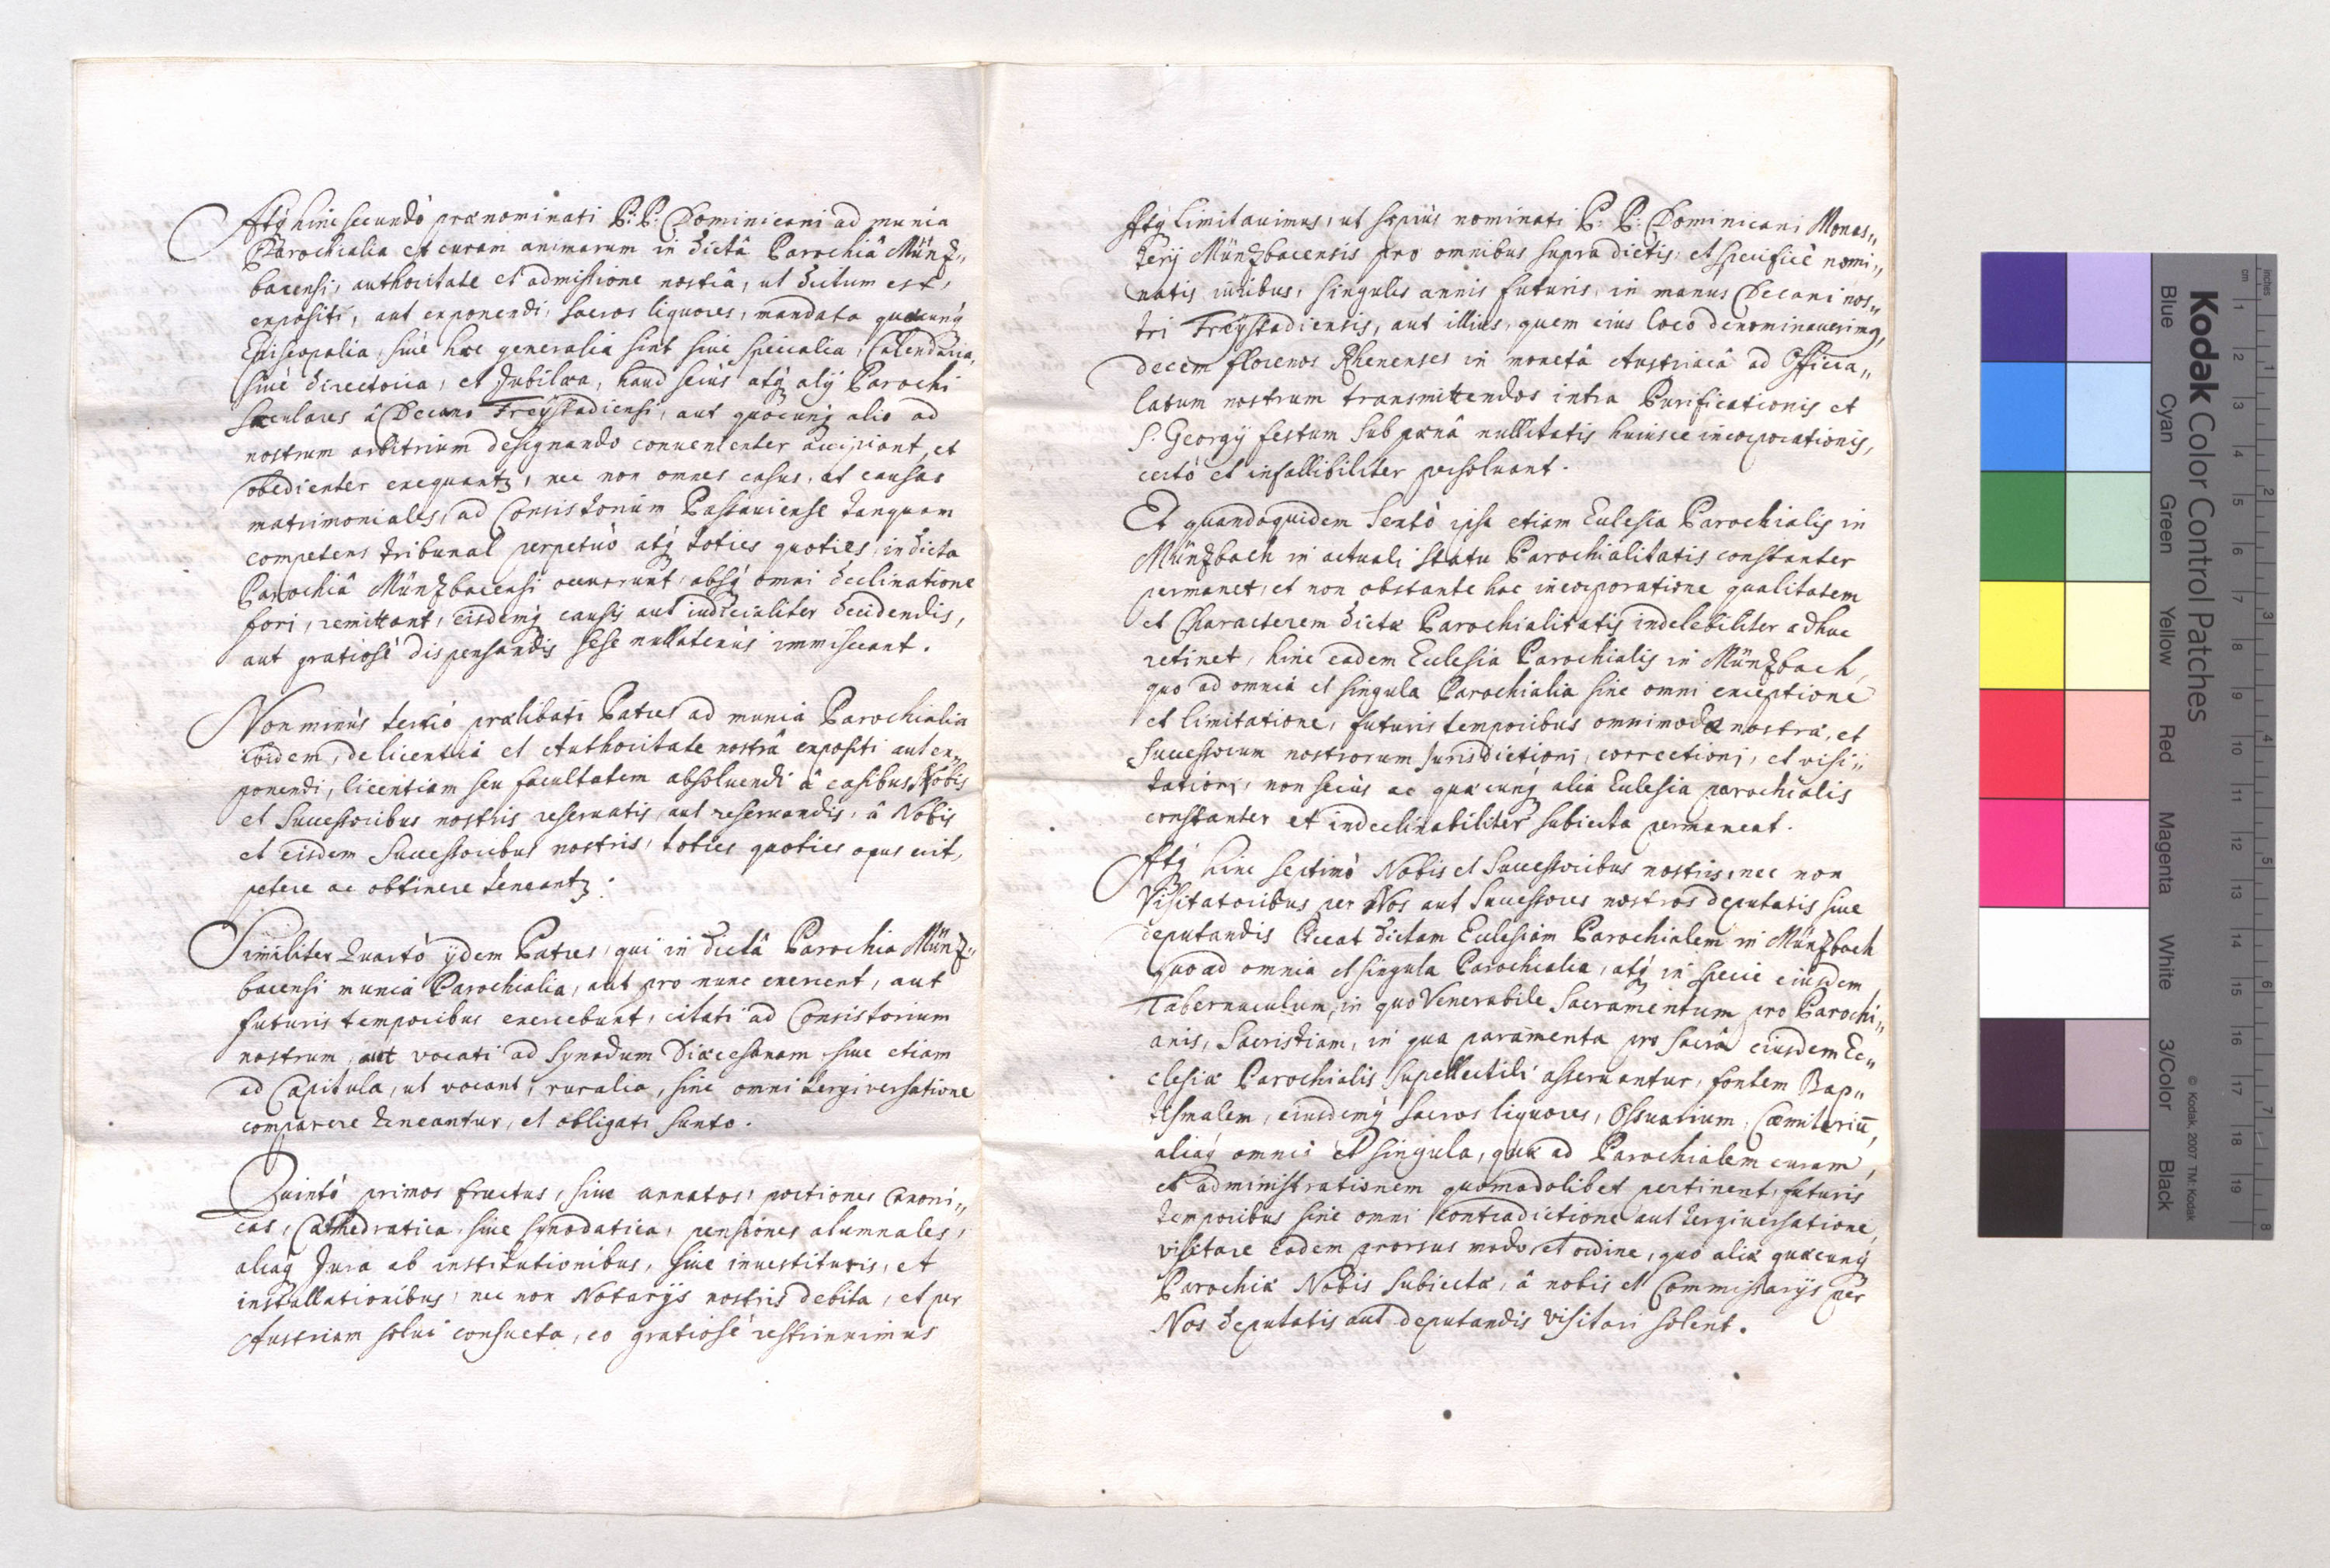 Atq hinc secundò prænominati P: P: Dominicani ad munia
Parochialia et curam animarum in dictâ Parochiâ Münz„
bacensi, authoritate et admissione nostrâ, ut dictum est,
expositi, aut exponendi, sacros liquores, mandata quæcunq
Episcopalia, sivè hæc generalia sint sive specialia, Calendaria,
sivè directoria, et Jubilæa, haud secùs atq alij Parochi
sæculares â Decano Freÿstadiensi, aut quocunq alio ad
nostrum arbitrium designando convenienter accipiant, et
obedienter exequantr, nec non omnes casus, et causas
matrimoniales, ad Consistorium Passauiense tanquam
competens tribunal perpetuò atq toties quoties, in dicta
Parochiâ Münzbacensi occurrunt, absq omni declinatione
fori, remittant, eisdemq causis aut iudicialiter decidendis,
aut gratiosè dispensandis sese nullatenùs immisceant.
Non minùs tertiò prælibati Patres ad munia Parochialia
ibidem, de licentiâ et Authoritate nostrâ expositi aut ex„
ponendi, licentiam seu facultatem absoluendi â casibus Nobis
et Successoribus nostris reseruatis, aut reseruandis, â Nobis
et eisdem Successoribus nostris, toties quoties opus erit,
petere ac obtinere teneantr.
Similiter Quartò ÿdem Patres, qui in dictâ Parochia Münz„
bacensi munia Parochialia, aut pro nunc exercent, aut
futuris temporibus exercebunt, citati ad Consistorium
nostrum, aut vocati ad Synodum Diœcesanam, siue etiam
ad Capitula, ut vocant, ruralia, sine omni tergiversatione
comparere teneantur, et obligati sunto.
Quintò primos fructus, siue annatas, portiones Canoni„
cas, Cathedratica, siue synodatica, pensiones alumnales,
aliaq Jura ab institutionibus, siue inuestituris, et
installationibus, nec non Notarijs nostris debita, et per
Austriam solui consueta, eo gratiosè restrinximus
Atq limitauimus, ut sæpiùs nominati P: P: Dominicani Monas„
terij Münzbacensis pro omnibus supra dictis, et specificè nomi„
natis iuribus, singulis annis futuris, in manus Decani nos„
tri Freÿstadiensis, aut illius, quem eius loco denominauerimq,
decem florenos Rhenenses in monetâ Austriacâ ad Officia„
latum nostrum transmittendos intra Purificationis et
S: Georgÿ festum sub pœnâ nullitatis huiusce incorporationis,
certò et infallibiliter persoluant.
Et quandoquidem Sextò ipsa etiam Ecclesia Parochialis in
Münzbach in actuali statu Parochialitatis constanter
permanet, et non obstante hac incorporatione qualitatem
et Characterem dictæ Parochialitatis indelebiliter adhuc
retinet, hinc eadem Ecclesia Parochialis in Münzbach,
quo ad omnia et singula Parochialia sine omni exceptione
et limitatione, futuris temporibus omnimodæ nostræ, et
Successorum nostrorum Jurisdictioni, correctioni, et visi„
tationi, non secùs ac quæcunq alia Ecclesia parochialis
constanter et indeclinabiliter subiecta permaneat.
Atq hinc septimò Nobis et Successoribus nostris, nec non
Visitatoribus per Nos aut Successores nostros deputatis siue
deputandis liceat dictam Ecclesiam Parochialem in Münzbach
quoad omnia et singula Parochialia, atq in specie eiusdem
Tabernaculum, in quo Venerabile Sacramentum pro Parochi„
anis, Sacristiam, in qua paramenta pro sacrâ eiusdem Ec„
clesiæ Parochialis supellectili asseruantur, fontem Bap„
tismalem, eiusdemq sacros liquores, Ossuarium, Cœmiteriū,
aliaq omnia et singula, quæ ad Parochialem curam,
et administrationem quomodolibet pertinent, futuris
temporibus sine omni contradictione aut tergiuersatione,
visitare eodem prorsus modo et ordine, quo aliæ quæcunq
Parochiæ Nobis subiectæ, â nobis et Commissarijs per
Nos deputatis aut deputandis visitari solent.
Kodak Color Control Patches
Blue Cyan Green Yellow Red Magenta White 3/Color Black
© Kodak, 2007 TM: Kodak
cm 1 2 3 4 5 6 7 8 9 10 11 12 13 14 15 16 17 18 19
inches 1 2 3 4 5 6 7 8